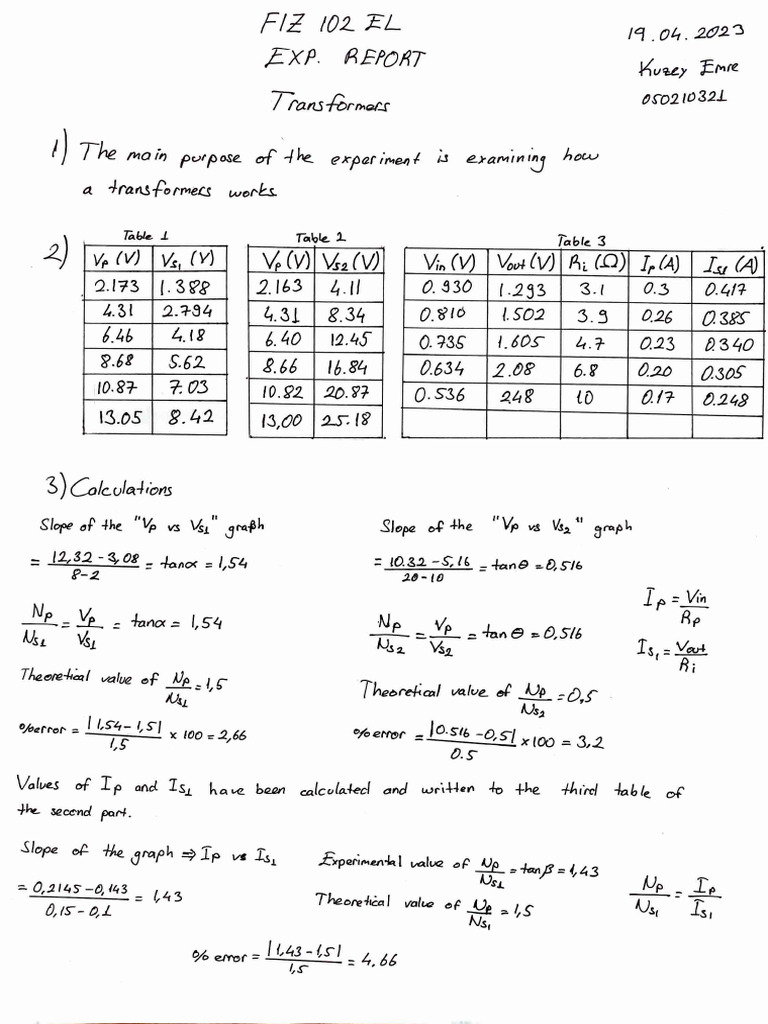 FIZ 102 EL
EXP. REPORT
Transformers
19.04.2023
Kuzey Emre
050210321
1) The main purpose of the experiment is examining how
a transformers works
2)
Table 1
Vp (V) Vs1 (V)
2.173 1.388
4.31 2.794
6.46 4.18
8.68 5.62
10.87 7.03
13.05 8.42
Table 2
Vp (V) Vs2 (V)
2.163 4.11
4.31 8.34
6.40 12.45
8.66 16.84
10.82 20.87
13,00 25.18
Table 3
Vin (V) Vout (V) Ri (Ω) Ip (A) Is1 (A)
0.930 1.293 3.1 0.3 0.417
0.810 1.502 3.9 0.26 0.385
0.735 1.605 4.7 0.23 0.340
0.634 2.08 6.8 0.20 0.305
0.536 2.48 10 0.17 0.248
3) Calculations
Slope of the "Vp vs Vs1" graph
= (12,32 - 3,08) / (8-2) = tanα = 1,54
Np/Ns1 = Vp/Vs1 = tanα = 1,54
Theoretical value of Np/Ns1 = 1,5
% error = |1,54 - 1,5| / 1,5 × 100 = 2,66
Slope of the "Vp vs Vs2" graph
= (10.32 - 5,16) / (20-10) = tanθ = 0,516
Np/Ns2 = Vp/Vs2 = tanθ = 0,516
Theoretical value of Np/Ns2 = 0,5
% error = |0.516 - 0,5| / 0.5 × 100 = 3,2
Ip = Vin/Rp
Is1 = Vout/Ri
Values of Ip and Is1 have been calculated and written to the third table of
the second part.
Slope of the graph ⇒ Ip vs Is1
= (0,2145 - 0,143) / (0,15 - 0,1) = 1,43
Experimental value of Np/Ns1 = tanβ = 1,43
Theoretical value of Np/Ns1 = 1,5
Np/Ns1 = Ip/Is1
% error = |1,43 - 1,5| / 1,5 = 4.66